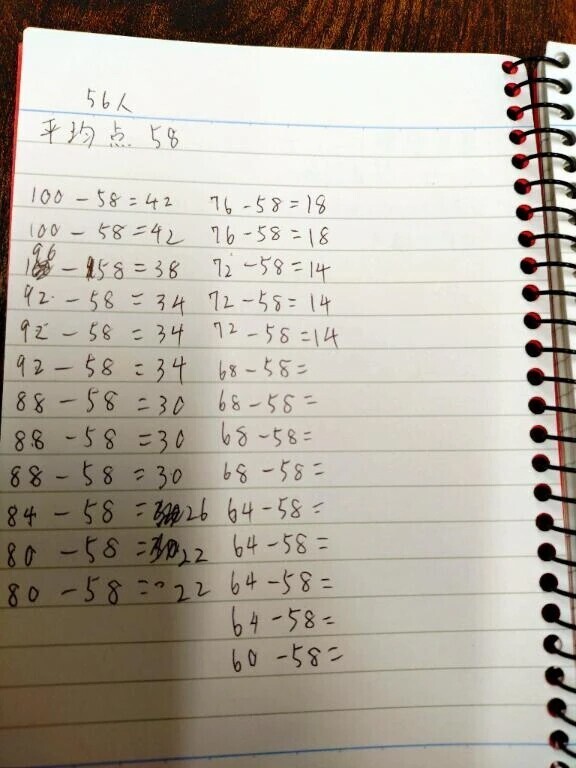 56人
平均点 58
100 - 58 = 42
100 - 58 = 42
96 - 58 = 38
92 - 58 = 34
92 - 58 = 34
92 - 58 = 34
88 - 58 = 30
88 - 58 = 30
88 - 58 = 30
84 - 58 = 26
80 - 58 = 22
80 - 58 = 22
76 - 58 = 18
76 - 58 = 18
72 - 58 = 14
72 - 58 = 14
72 - 58 = 14
68 - 58 =
68 - 58 =
68 - 58 =
68 - 58 =
64 - 58 =
64 - 58 =
64 - 58 =
64 - 58 =
60 - 58 =